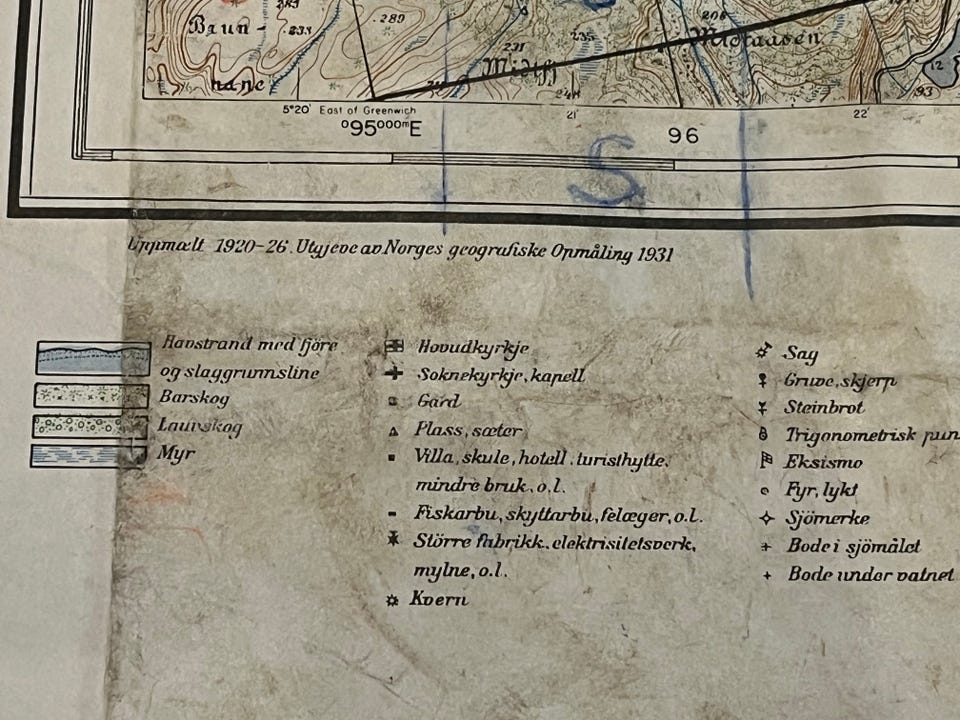 289
280
208
Braun-
233
231
235
Midtaasen
nane
12
93
5°20' East of Greenwich
21'
22'
⁰95⁰⁰⁰ᵐE
96
S
Uppmælt 1920-26. Utgjeve av Norges geografiske Opmåling 1931
Havstrand med fjöre
og slaggrunnsline
Barskog
Lauvskog
Myr
Hovudkyrkje
Soknekyrkje, kapell
Gard
Plass, sæter
Villa, skule, hotell, turisthytte,
mindre bruk, o.l.
Fiskarbu, skyttarbu, felæger, o.l.
Större fabrikk, elektrisitetsverk,
mylne, o.l.
Kvern
Sag
Gruve, skjerp
Steinbrot
Trigonometrisk pun
Eksismo
Fyr, lykt
Sjömerke
Bode i sjömålet
Bode under vatnet